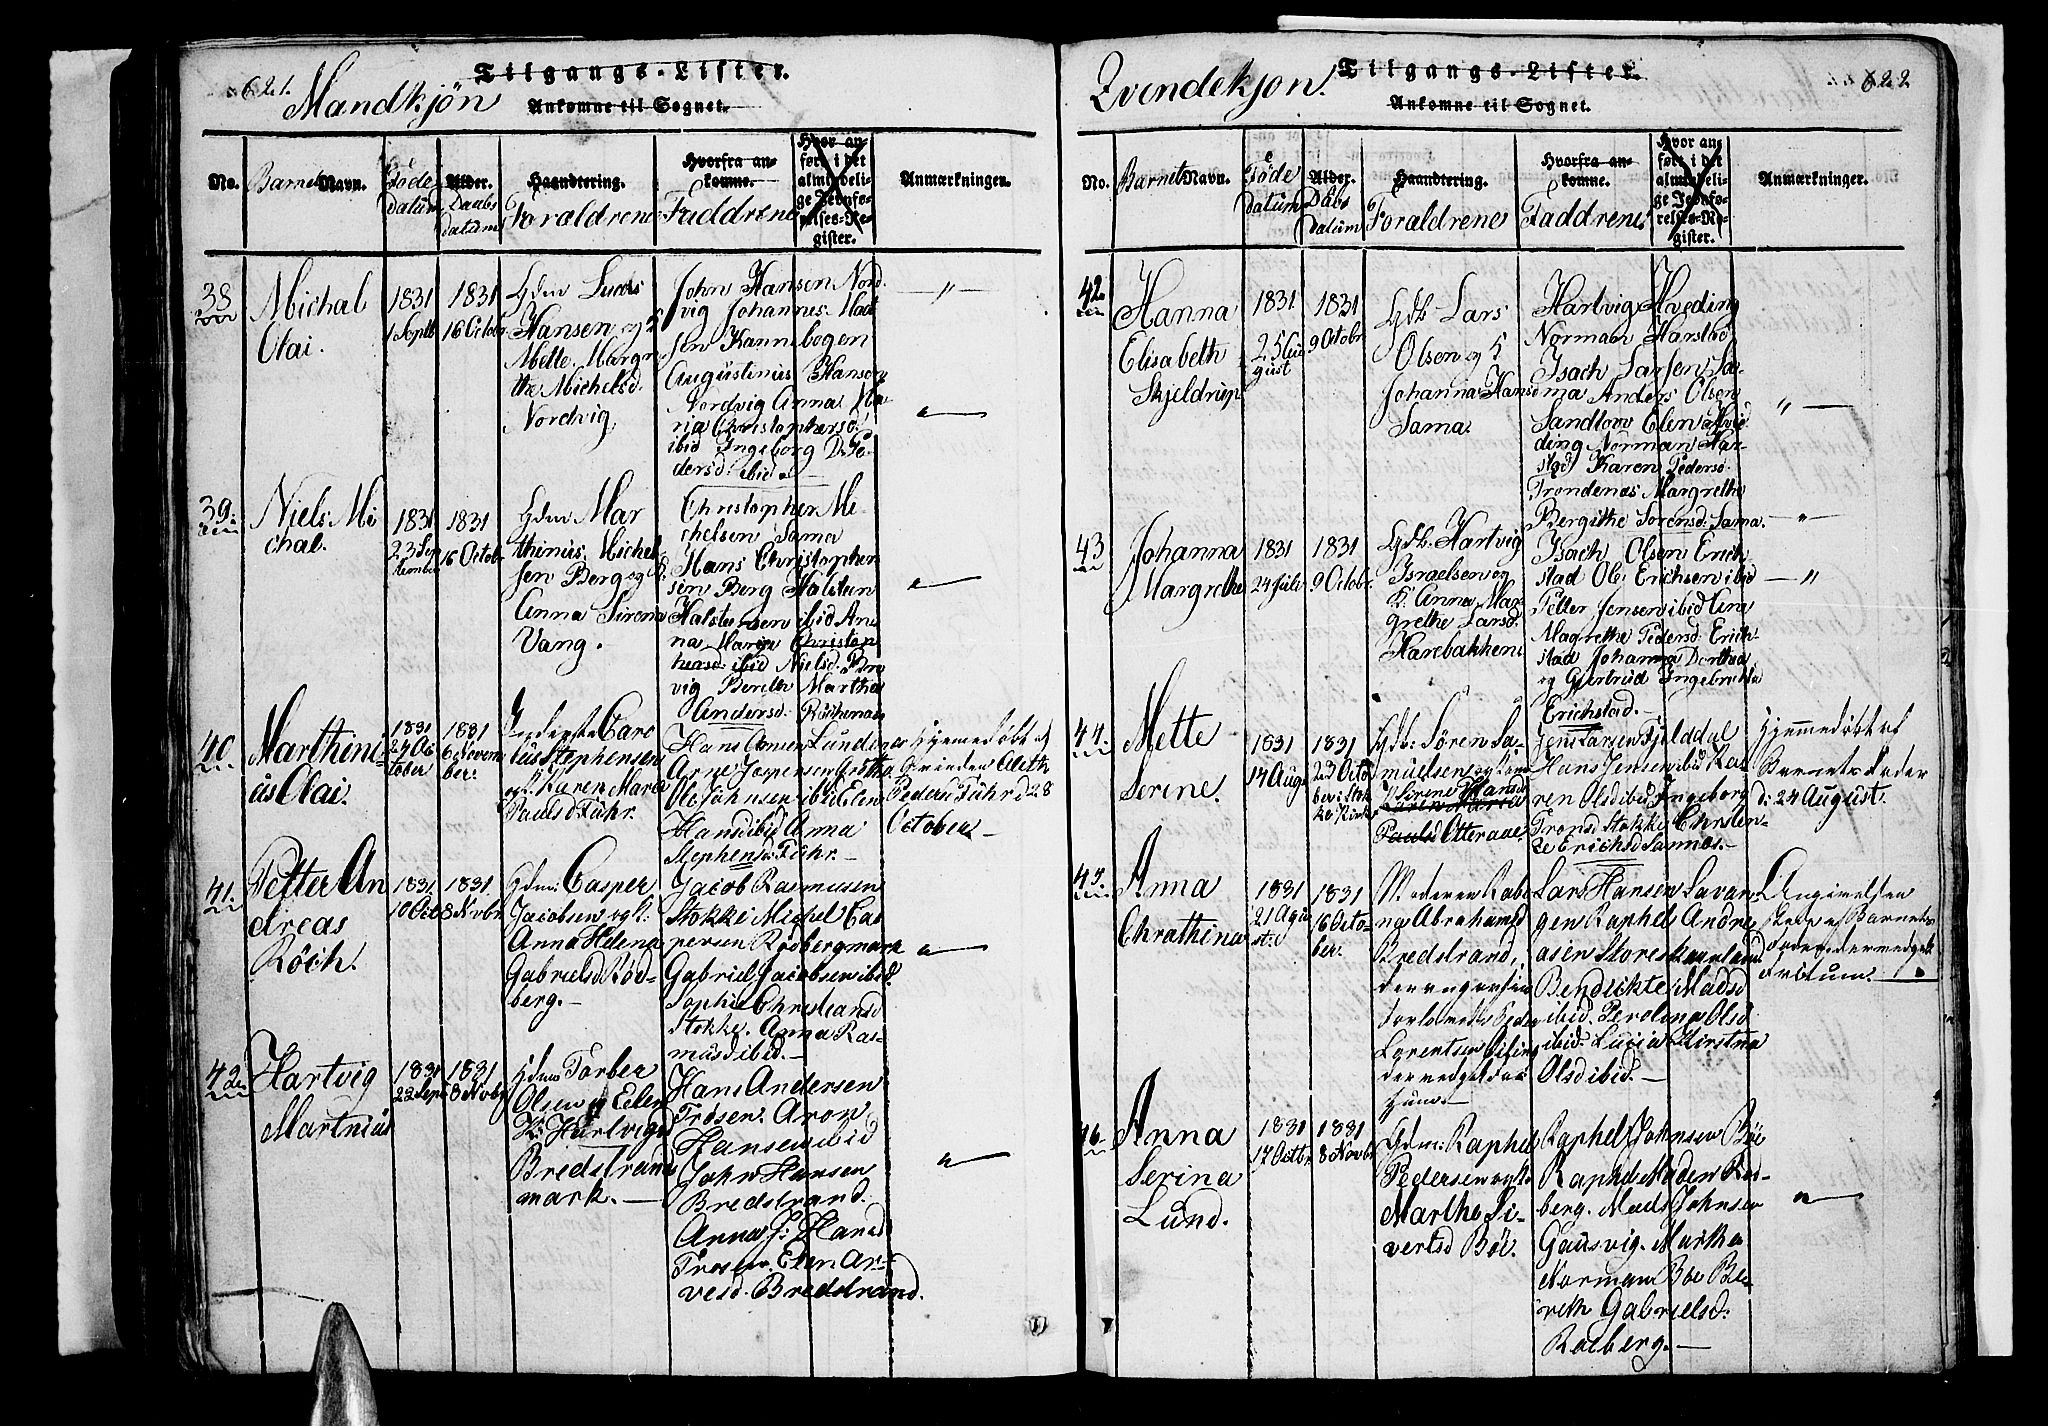 621.
Mandkjön
Tilgangs-Lister.
Ankomne til Sognet.
No.
Barnets Navn.
Föde
datum
Alder.
Daabs
datum
Haandtering.
Forældrene
Hvorfra an-
komne.
Faddrene
Hvor an-
ført i det
almindeli-
ge Jevnfø-
relses-Re-
gister.
Anmærkninger.
38
Michal
Olai.
1831
1 Septb
1831
16 Octobr
Gdm Lucas
Hansen og
Mette Margre
the Michelsd.
Nordvig.
John Hansen Nord
vig Johannes Mat
sen Kannebogen
Augustinus Hansen
Nordvig Anna Ma
na Christophersd.
ibid Ingeborg D. Pe
dersd. ibid
— " —
39.
Niels Mi
chal.
1831
23 Sep
tember
1831
16 Octobr
Gdm Mar
thinus Michel
sen Berg og K.
Anna Sirena
Vang.
Christopher Mi-
chelsen Sama
Hans Christopher
sen Berg Halsten
Halstensen ibid An
na Maria Christop
hersd. ibid Nielsd.
vig Bereth Martha
Andersd.
40.
Marthini-
us Olai.
1831
24 Oc
tober
1831
6 Novem
ber.
Caro
lus Stephensen
og K. Karen Maria
Paulsd Fuhr.
Hans Arnsen Lundenes
Arne Jespersen
Ole Johnsen ibid Elen
Hansd ibid Anna
Stephensd Fuhr. —
Hjemmedöbt af
Qvinden Aleth
Pedersd Fuhr d 28
October. —
41.
Petter An
dreas
Röch.
1831
10 Oct
1831
8 Nvbr.
Gdm: Casper
Jacobsen og K:
Anna Helena
Gabrielsd Röd-
berg. —
Jacob Rasmusen
Stokke Michel Cas
persen Rödbergmark
Gabriel Jacobsen ibid.
Sophie Christiansd
Stokke. Anna Ras-
musd ibid. —
42
Hartvig
Martnius
1831
23 Septb
1831
8 Nvbr
Gdm Torber
Olsen og Elen
K: Hartvigsd
Bredstrand
mark. —
Hans Andersen
Trosen. Aron
Hansen ibid
John Hansen
Bredstrand.
Anna J: Hansd
Trosen. Elen Ar-
vesd. Bredstrand.
622
Qvindekjön.
Tilgangs-Lister.
Ankomne til Sognet.
No.
Barnets Navn.
Föde
datum
Alder.
Dåbs
datum
Haandtering.
Forældrene
Hvorfra an-
komne.
Faddrene
Hvor an-
ført i det
almindeli-
ge Jevnfø-
relses-Re-
gister.
Anmærkninger.
42
Hanna
Elisabeth
Skjeldrup
1831
25 Au
gust
1831
9 Octobr
Gdb Lars
Olsen og
Johanna Hansd
Sama.
Hartvig Hveding
Normann Harstad
Isach Larsen Sa-
ma Anders Olsen
Sandtorv Elen Hvid
ding Norman Har
stad Karen Pedersd.
Trondenes Margrethe
Bergithe Sörensd. Sama.
" —
43
Johanna
Margrethe
1831
24 Juli
1831
9 Octobr.
Gdb. Hartvig
Israelsen og
K. Anna Mar
grethe Larsd.
Harebakken
Isach Olsen Erich
stad Ole Erichsen ibid
Petter Jensen ibid Ana
Magrethe Pedersd. Erich-
stad Johanna Dorthea
og Gjertrud Ingebricktsd
Erichstad. —
— "
44.
Mette
Serine.
1831
14 Augs
1831
23 Octo
ber i Stok
ke Kirke
Gdb: Sören Sa-
muelsen og Kone
Serene Hansd
Karen Maria
Paulsd Otteraae
Jens Larsen Fjelddal
Hans Jensen ibid Ka
ren Olsd ibid Ingeborg
Tronsd Stokke Chrsten-
ze Erichsd Sannæs. —
Hjemmedöbt af
Barnets Fader
d: 24 August.
45.
Anna
Chrathina
1831
21 Agu
st:
1831
16 Octo-
ber.
Moderen Rabe
na Abrahamsd
Bredstrand,
Lorentsen
Lars Hansen Lavan
gen Raphel Andre
asen Storeskavland
Bendickte Madsd
ibid. Peroline Olsd
ibid. Lucia Kirstna
Olsd ibid. —
Angivelsen
skede af Barnets
46
Anna
Serina
Lund.
1831
17 Octbr
1831
8 Novbr
Gdm: Raphel
Pedersen og K:
Marthe Si-
vertsd Böe.
Raphel Johnsen Böe
Raphel Madsen Röd-
berg. Mads Johnsen
Gausvig. Martha
Norman Böe Be-
reth Gabrielsd.
Rödberg. —